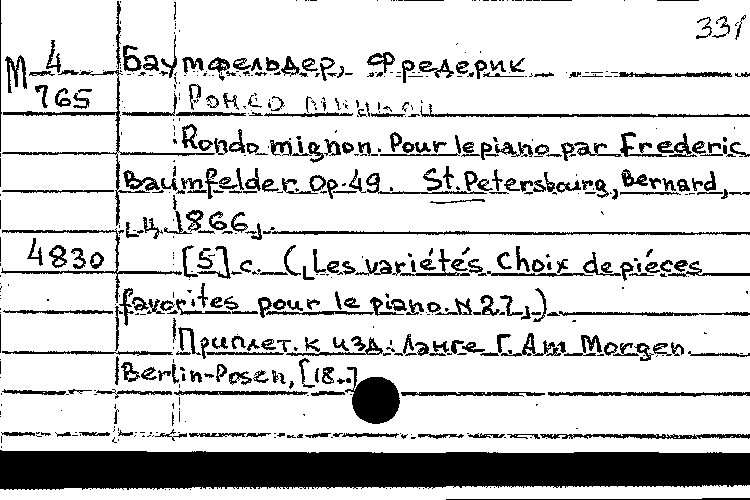 331
М 4 Баумфельдер, Фредерик
765 Рондо миньон
Rondo mignon. Pour le piano par Frederic
Baumfelder. Op. 49. St. Petersbourg, Bernard,
⌊ц. 1866⌋.
4830 [5] с. (⌊Les variétés. Choix de piéces
favorites pour le piano. N 27⌋)
Приплет. к изд.: Ланге Г. Am Morgen.
Berlin-Posen, [18..]